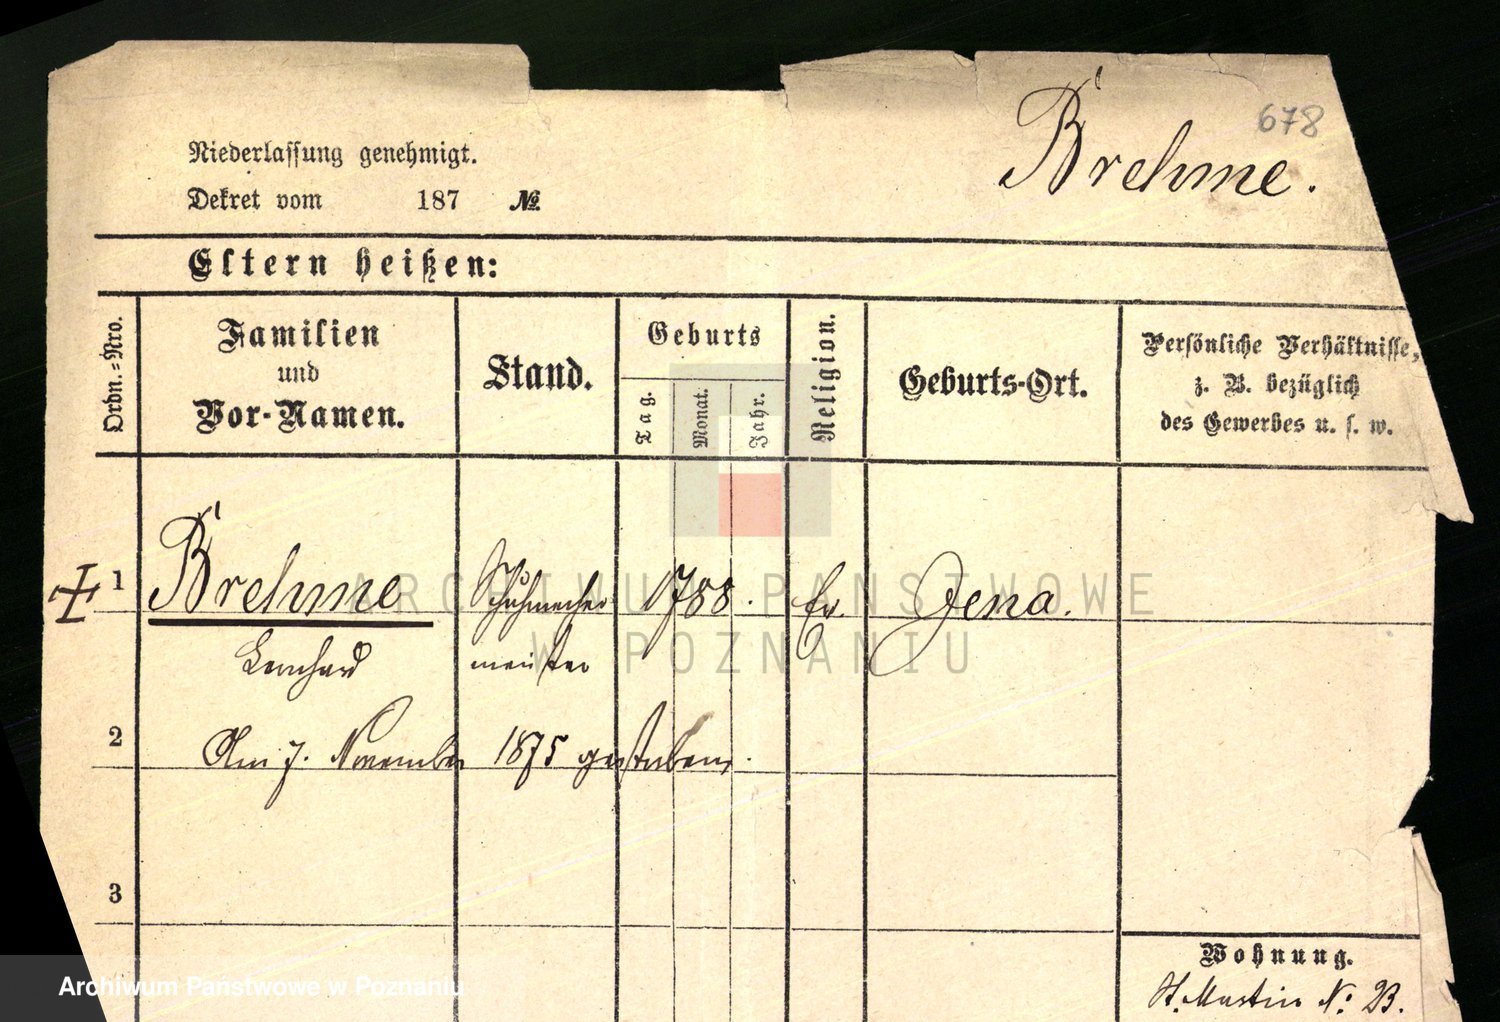 678
Brehme.
Niederlassung genehmigt.
Dekret vom 187 №
Eltern heißen:
Ordn.-Nro.
Familien
und
Vor-Namen.
Stand.
Geburts
Tag.
Monat.
Jahr.
Religion.
Geburts-Ort.
Persönliche Verhältnisse,
z. B. bezüglich
des Gewerbes u. s. w.
1 Brehme Schuhmacher 1788. Ev. Jena.
meister
2 Am 7. November 1875 gestorben.
3
Wohnung.
St. Martin N: 23.
ARCHIWUM PAŃSTWOWE
W POZNANIU
Archiwum Państwowe w Poznaniu